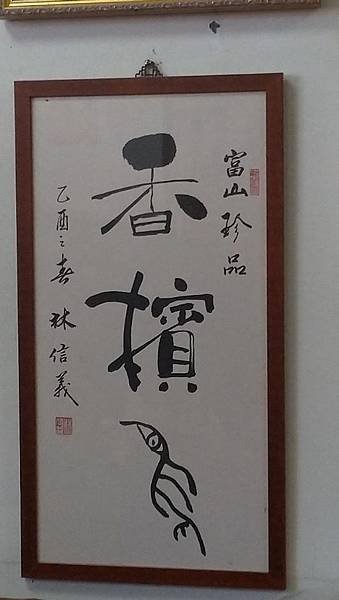 富山珍品
香檳
乙酉之春 林信義